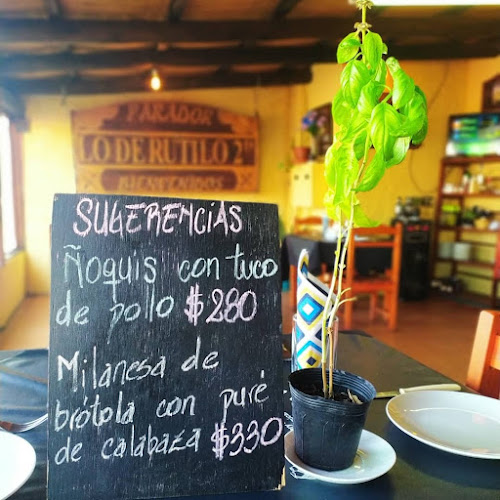 PARADOR
LO DE RUTILO 2"
BIENVENIDOS
SUGERENCIAS
Ñoquis con tuco
de pollo $280
Milanesa de
brótola con puré
de calabaza $330